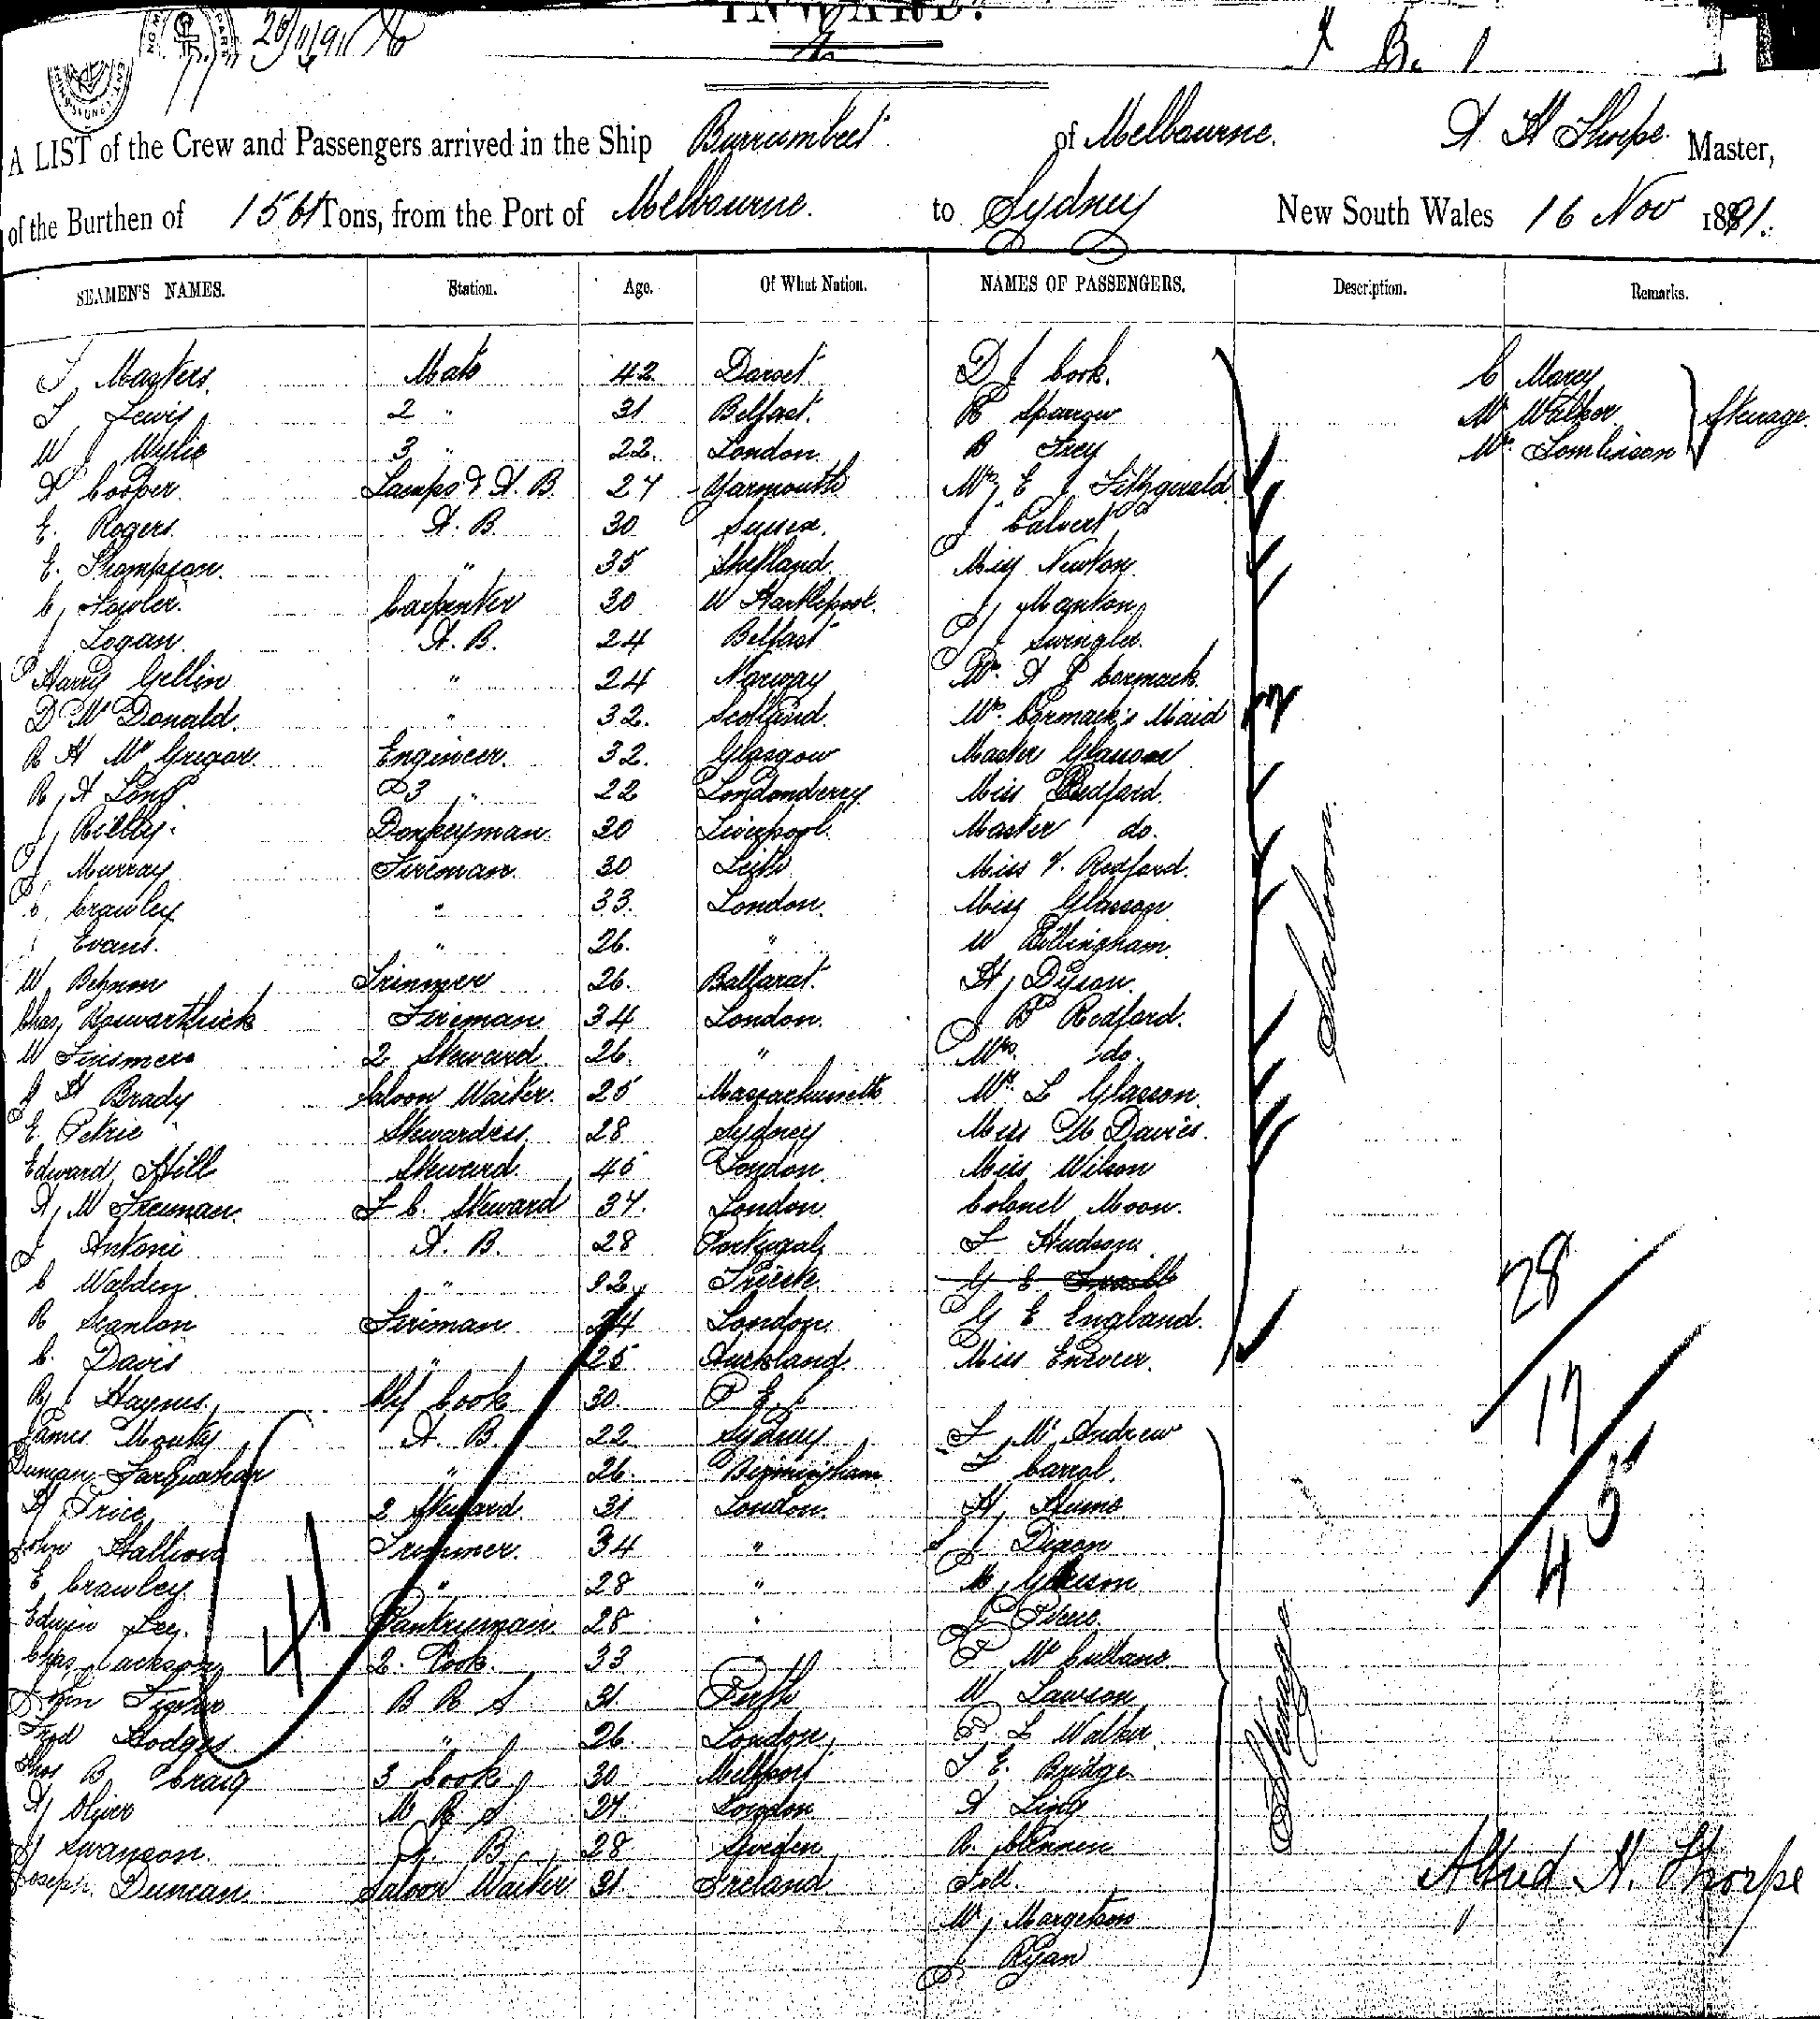 INWARD.
20/11/91
A LIST of the Crew and Passengers arrived in the Ship Burrumbeet of Melbourne. A H Thorpe Master,
of the Burthen of Tons, from the Port of Melbourne. to Sydney New South Wales 16 Nov 1891.
SEAMEN'S NAMES. Station. Age. Of What Nation. NAMES OF PASSENGERS. Description. Remarks.
T Masters. Mate 42 Dorset D J Cook. C Marcy
T Lewis 2 " 31 Belfast. R Sparrow W Walker Steerage.
W J Wylie 3 " 22. London B Frey Mr Tomlinson
A Cooper Lamps & A. B. 27 Yarmouth Mr E J Fitzgerald
E. Rogers. A. B. 30 Sussex. J Calvert
E. Thompson. " 35 Shetland. Miss Newton
C. Fowler. Carpenter 30 W Hartlepool. J Manton
J Logan. A. B. 24 Belfast J Swingler.
Harry Gellin " 24 Norway Mr A J Cormack.
D McDonald. " 32. Scotland. Mrs Cormack's Maid
R H McGregor. Engineer. 32. Glasgow Master Glasson
R A Long 3 " 22 Londonderry Miss Redford.
J Reilly. Donkeyman. 30 Liverpool. Master do.
J Murray Fireman. 30 Leith Miss V. Redford.
C. Crawley " 33. London. Miss Glasson
J Evans. " 26. " W Billingham.
W Trimmer 26. Ballarat. H Dyson.
Chas Fireman 34 London. J B Redford.
W 2 Steward 26. " Mrs do.
J H Brady Saloon Waiter. 25 Massachusetts Mr L Glasson.
E Petrie Stewardess. 28 Sydney Miss M Davies.
Edward Hill Steward 45 London. Miss Wilson
A W Freeman. F. C. Steward 37. London. Colonel Moon.
J Antoni A. B. 28 Portugal F Hudson
C Walden " 22 G E
R Scanlon Fireman 24 London. G E England.
C. Davis " 25 Auckland. Miss
R J Haynes Cook 30. P E I
James A. B. 22 Sydney F McAndrew
Duncan Farquahar " 26. Birmingham T Carrol.
H Price 2 Steward. 31 London. H, Hume
John Hallion Trimmer. 34 " S J Dixon
E Crawley. " 28 " M Gleeson
Edwin Lee. Pantryman 28 " J
Chas Jackson 2. Cook. 33
John B R S 31. Perth W Lawson
Fred Hodges " 26. London L Walker
Thos B Craig 3 Cook 30 T E. Bridge
A Oliver M R S 27 London A Ling
J Swanson. A. B. 28 Sweden R.
Joseph Duncan Saloon Waiter 31 Ireland
W, Margetson
J. Ryan
Saloon.
Steerage
28
17
5
4
Alfred H. Thorpe